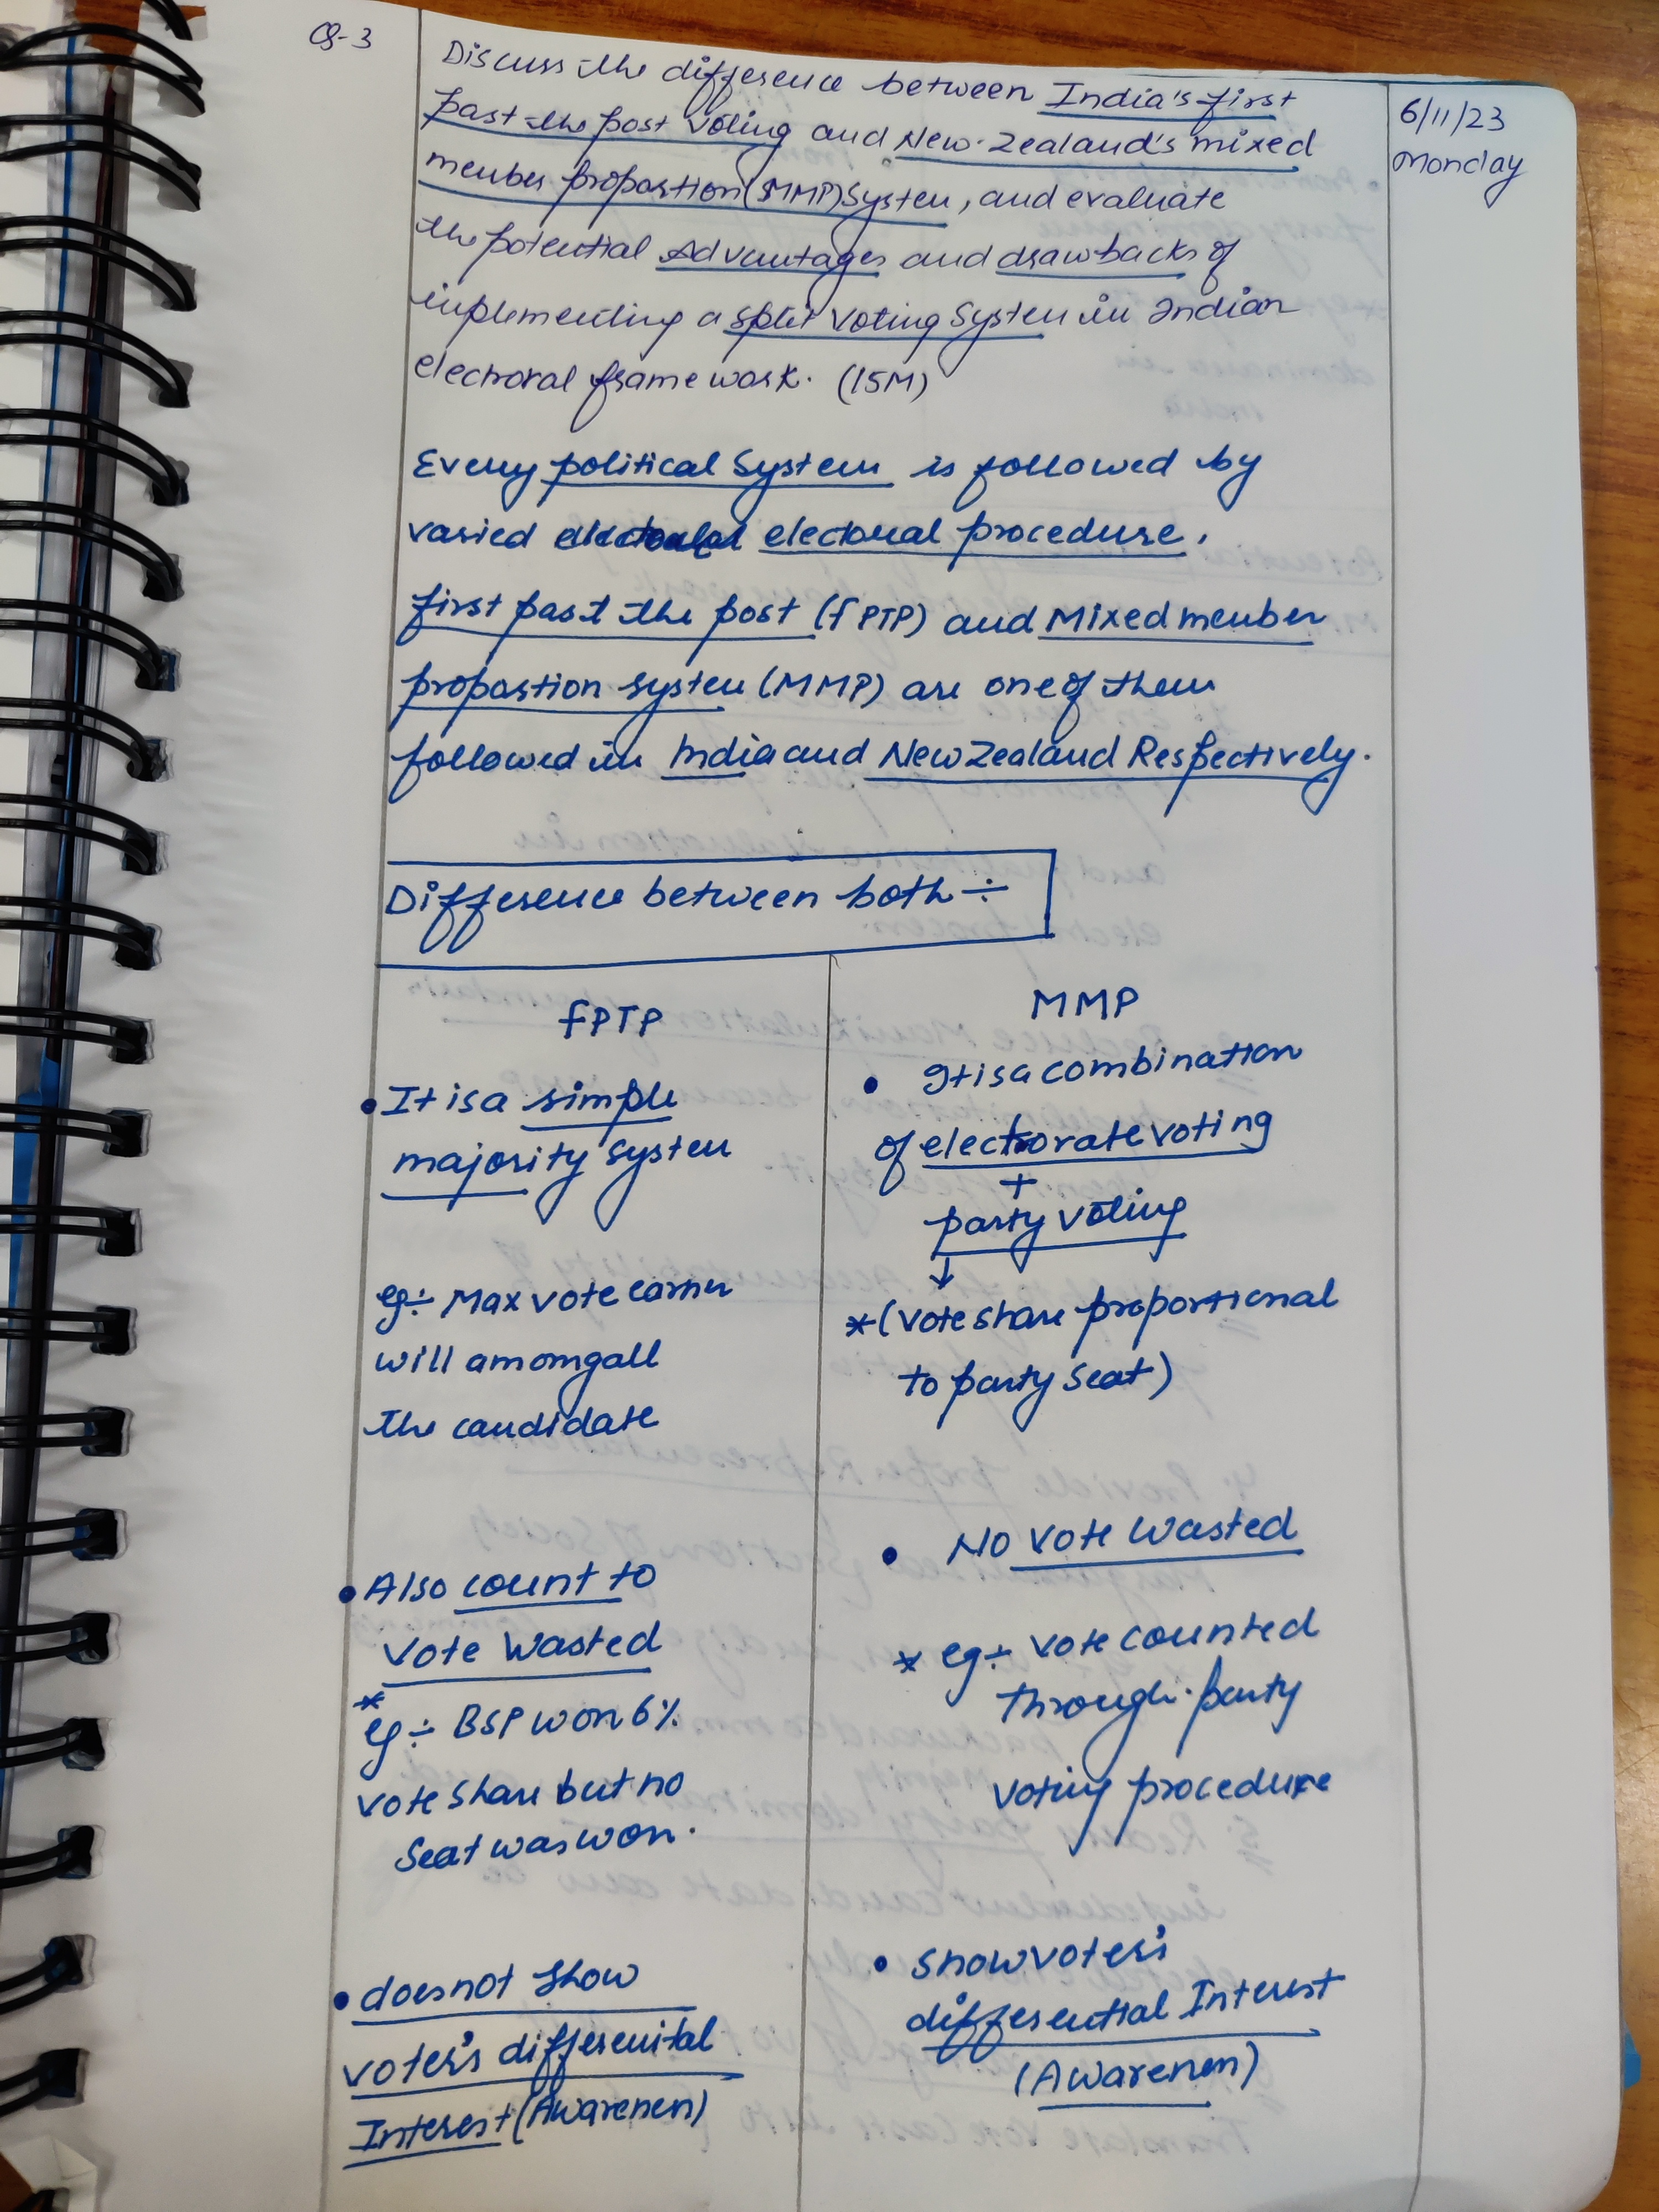 Q-3
6/11/23
Monday
Discuss the difference between India's first
past the post voting and New Zealand's mixed
member proportion (MMP) System, and evaluate
the potential Advantages and drawbacks of
implementing a split voting System in Indian
electoral frame work. (15M)
Every political System is followed by
varied electoral procedure.
first past the post (fPTP) and Mixed member
proportion system (MMP) are one of them
followed in India and New Zealand Respectively.
Difference between both ÷
fPTP
• It is a simple
majority system
eg ÷ Max vote earner
will amomg all
the candidate
• Also count to
Vote Wasted
* eg ÷ BSP won 6%
vote share but no
Seat was won.
• does not show
voter's differenital
Interest (Awareness)
MMP
• It is a combination
of electorate voting
+
party voting
↓
* (vote share proportional
to party seat)
• No vote Wasted
* eg ÷ Vote counted
through party
voting procedure
• Show voter's
differential Interest
(Awareness)